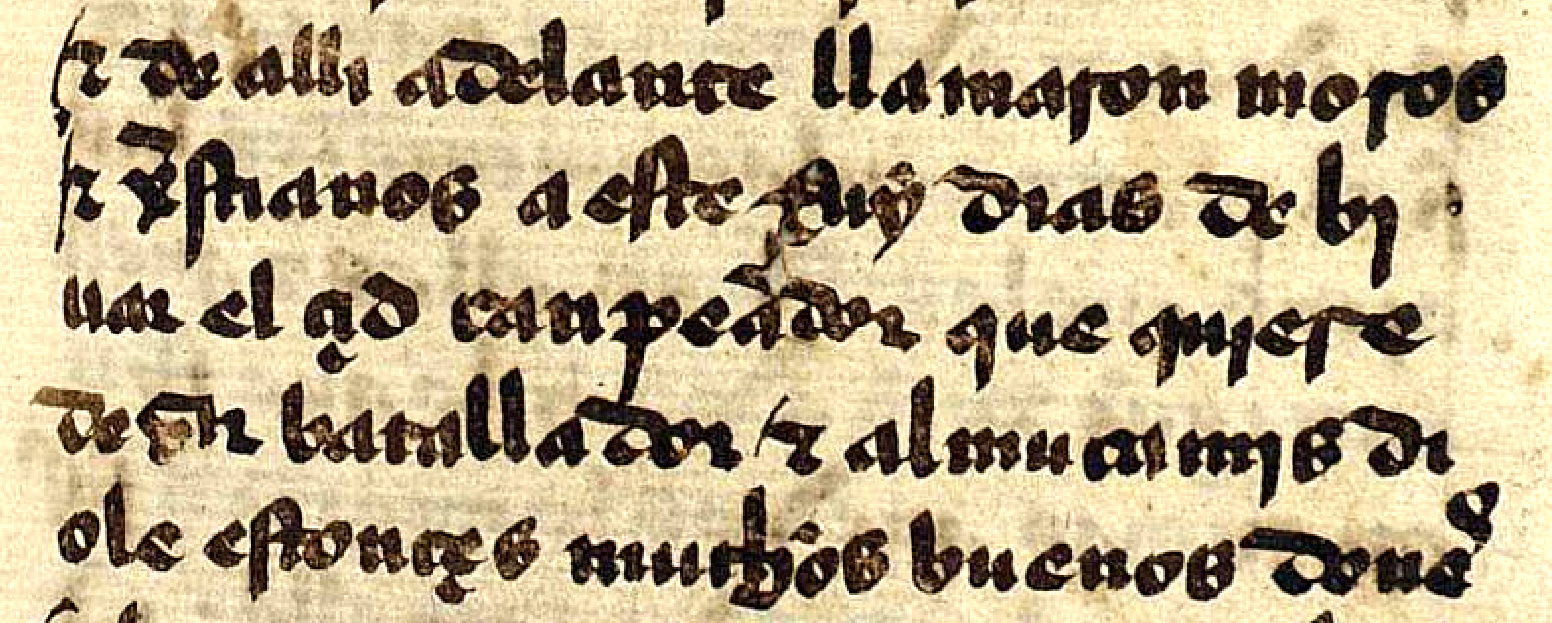 ⁊ de alli adelante llamaron moros
⁊ xp̃stianos a este Ruy dias de bi
uar el çid canpeador que quiere
dezir batallador ⁊ almucamjs di
ole estonçes muchos buenos dones